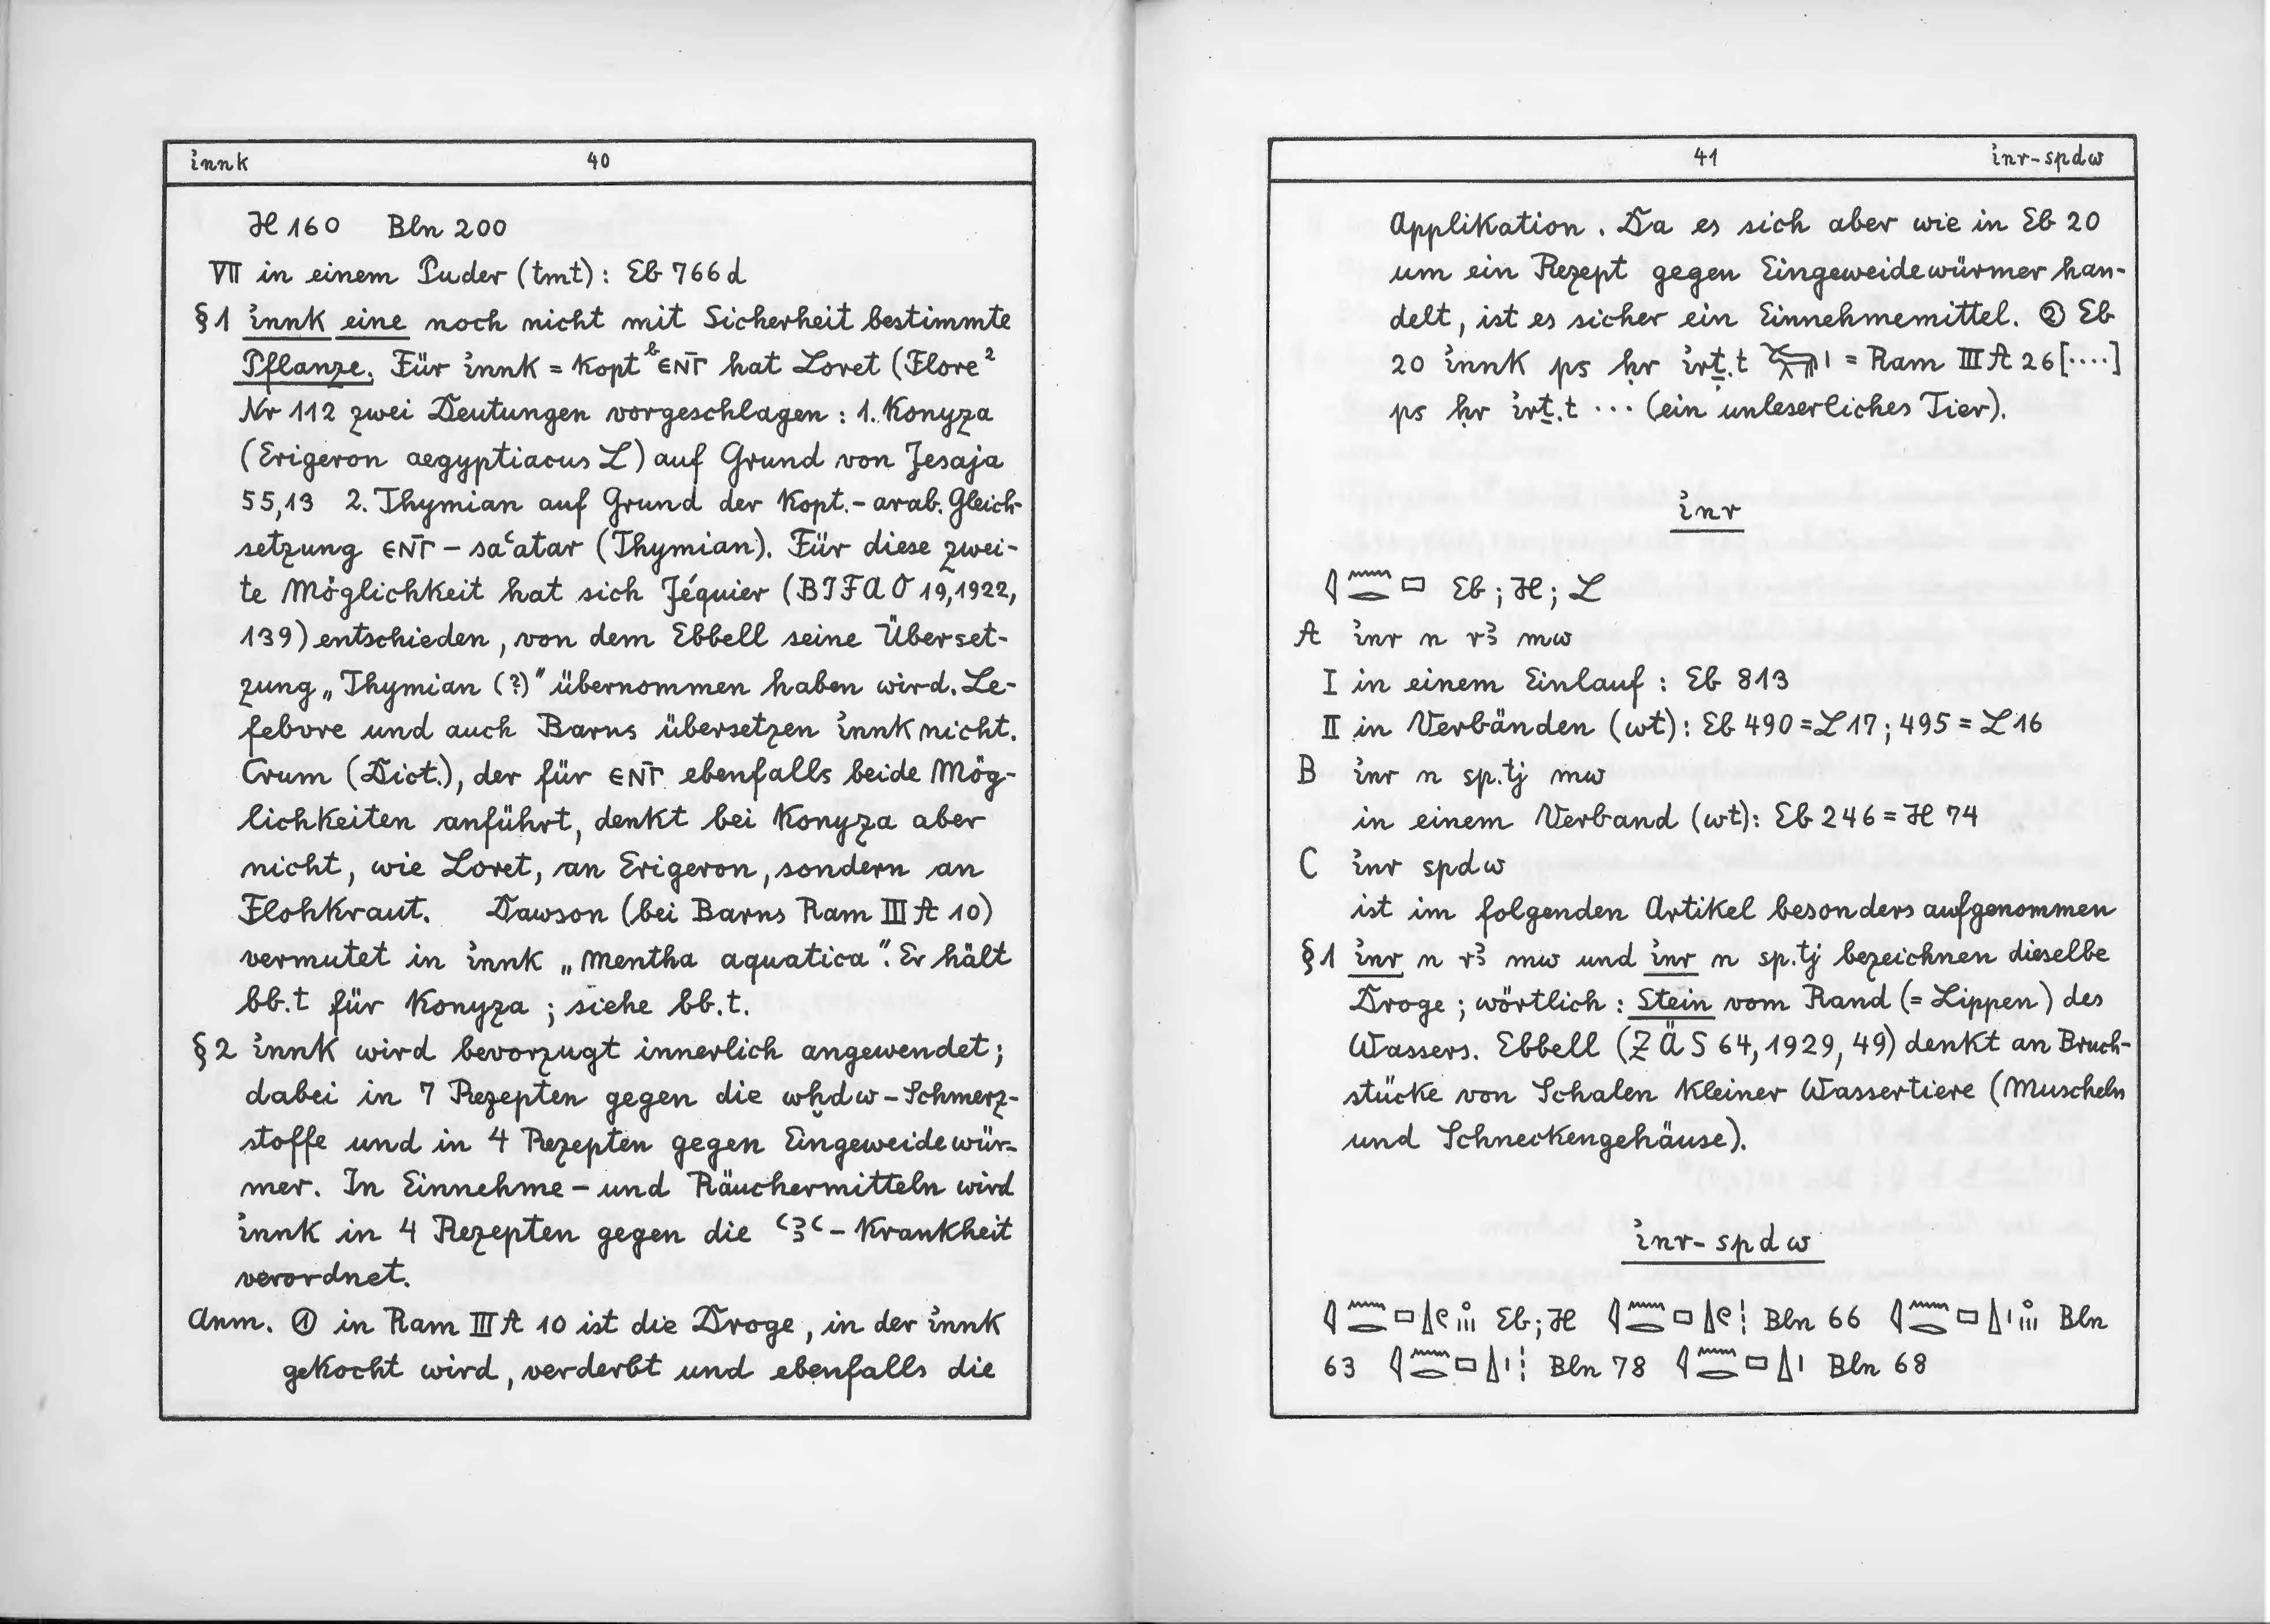 i҆nnk 40
H 160 Bln 200
VII in einem Puder (tmt): Eb 766 d
§ 1 i҆nnk eine noch nicht mit Sicherheit bestimmte
Pflanze. Für i҆nnk = Kopt ᵇⲉⲛϯ hat Loret (Flore²
Nr 112 zwei Deutungen vorgeschlagen: 1. Konyza
(Erigeron aegyptiacus L) auf Grund von Jesaja
55,13 2. Thymian auf Grund der Kopt.-arab. Gleich-
setzung ⲉⲛϯ – saʿatar (Thymian). Für diese zwei-
te Möglichkeit hat sich Jéquier (BIFAO 19,1922,
139) entschieden, von dem Ebbell seine Überset-
zung „Thymian (?)" übernommen haben wird. Le-
febvre und auch Barns übersetzen i҆nnk nicht.
Crum (Dict.), der für ⲉⲛϯ ebenfalls beide Mög-
lichkeiten anführt, denkt bei Konyza aber
nicht, wie Loret, an Erigeron, sondern an
Flohkraut. Dawson (bei Barns Ram III A 10)
vermutet in i҆nnk „mentha aquatica". Er hält
bb.t für Konyza; siehe bb.t.
§ 2 i҆nnk wird bevorzugt innerlich angewendet;
dabei in 7 Rezepten gegen die wḫdw-Schmerz-
stoffe und in 4 Rezepten gegen Eingeweidewür-
mer. In Einnehme- und Räuchermitteln wird
i҆nnk in 4 Rezepten gegen die ꜥꜣꜥ-Krankheit
verordnet.
Anm. ① in Ram III A 10 ist die Droge, in der i҆nnk
gekocht wird, verderbt und ebenfalls die
41 i҆nr-spdw
Applikation. Da es sich aber wie in Eb 20
um ein Rezept gegen Eingeweidewürmer han-
delt, ist es sicher ein Einnehmemittel. ② Eb
20 i҆nnk ps ḥr i҆rṯ.t = Ram III A 26 [....]
ps ḥr i҆rṯ.t ... (ein unleserliches Tier).
i҆nr
𓇋𓈖𓂋𓈙 Eb; H; L
A i҆nr n rꜣ mw
I in einem Einlauf: Eb 813
II in Verbänden (wt): Eb 490 = L 17; 495 = L 16
B i҆nr n sp.tj mw
in einem Verband (wt): Eb 246 = H 74
C i҆nr spdw
ist im folgenden Artikel besonders aufgenommen
§ 1 i҆nr n rꜣ mw und i҆nr n sp.tj bezeichnen dieselbe
Droge; wörtlich: Stein vom Rand (= Lippen) des
Wassers. Ebbell (ZÄS 64,1929,49) denkt an Bruch-
stücke von Schalen kleiner Wassertiere (Muscheln
und Schneckengehäuse).
i҆nr-spdw
Eb; H Bln 66 Bln
63 Bln 78 Bln 68